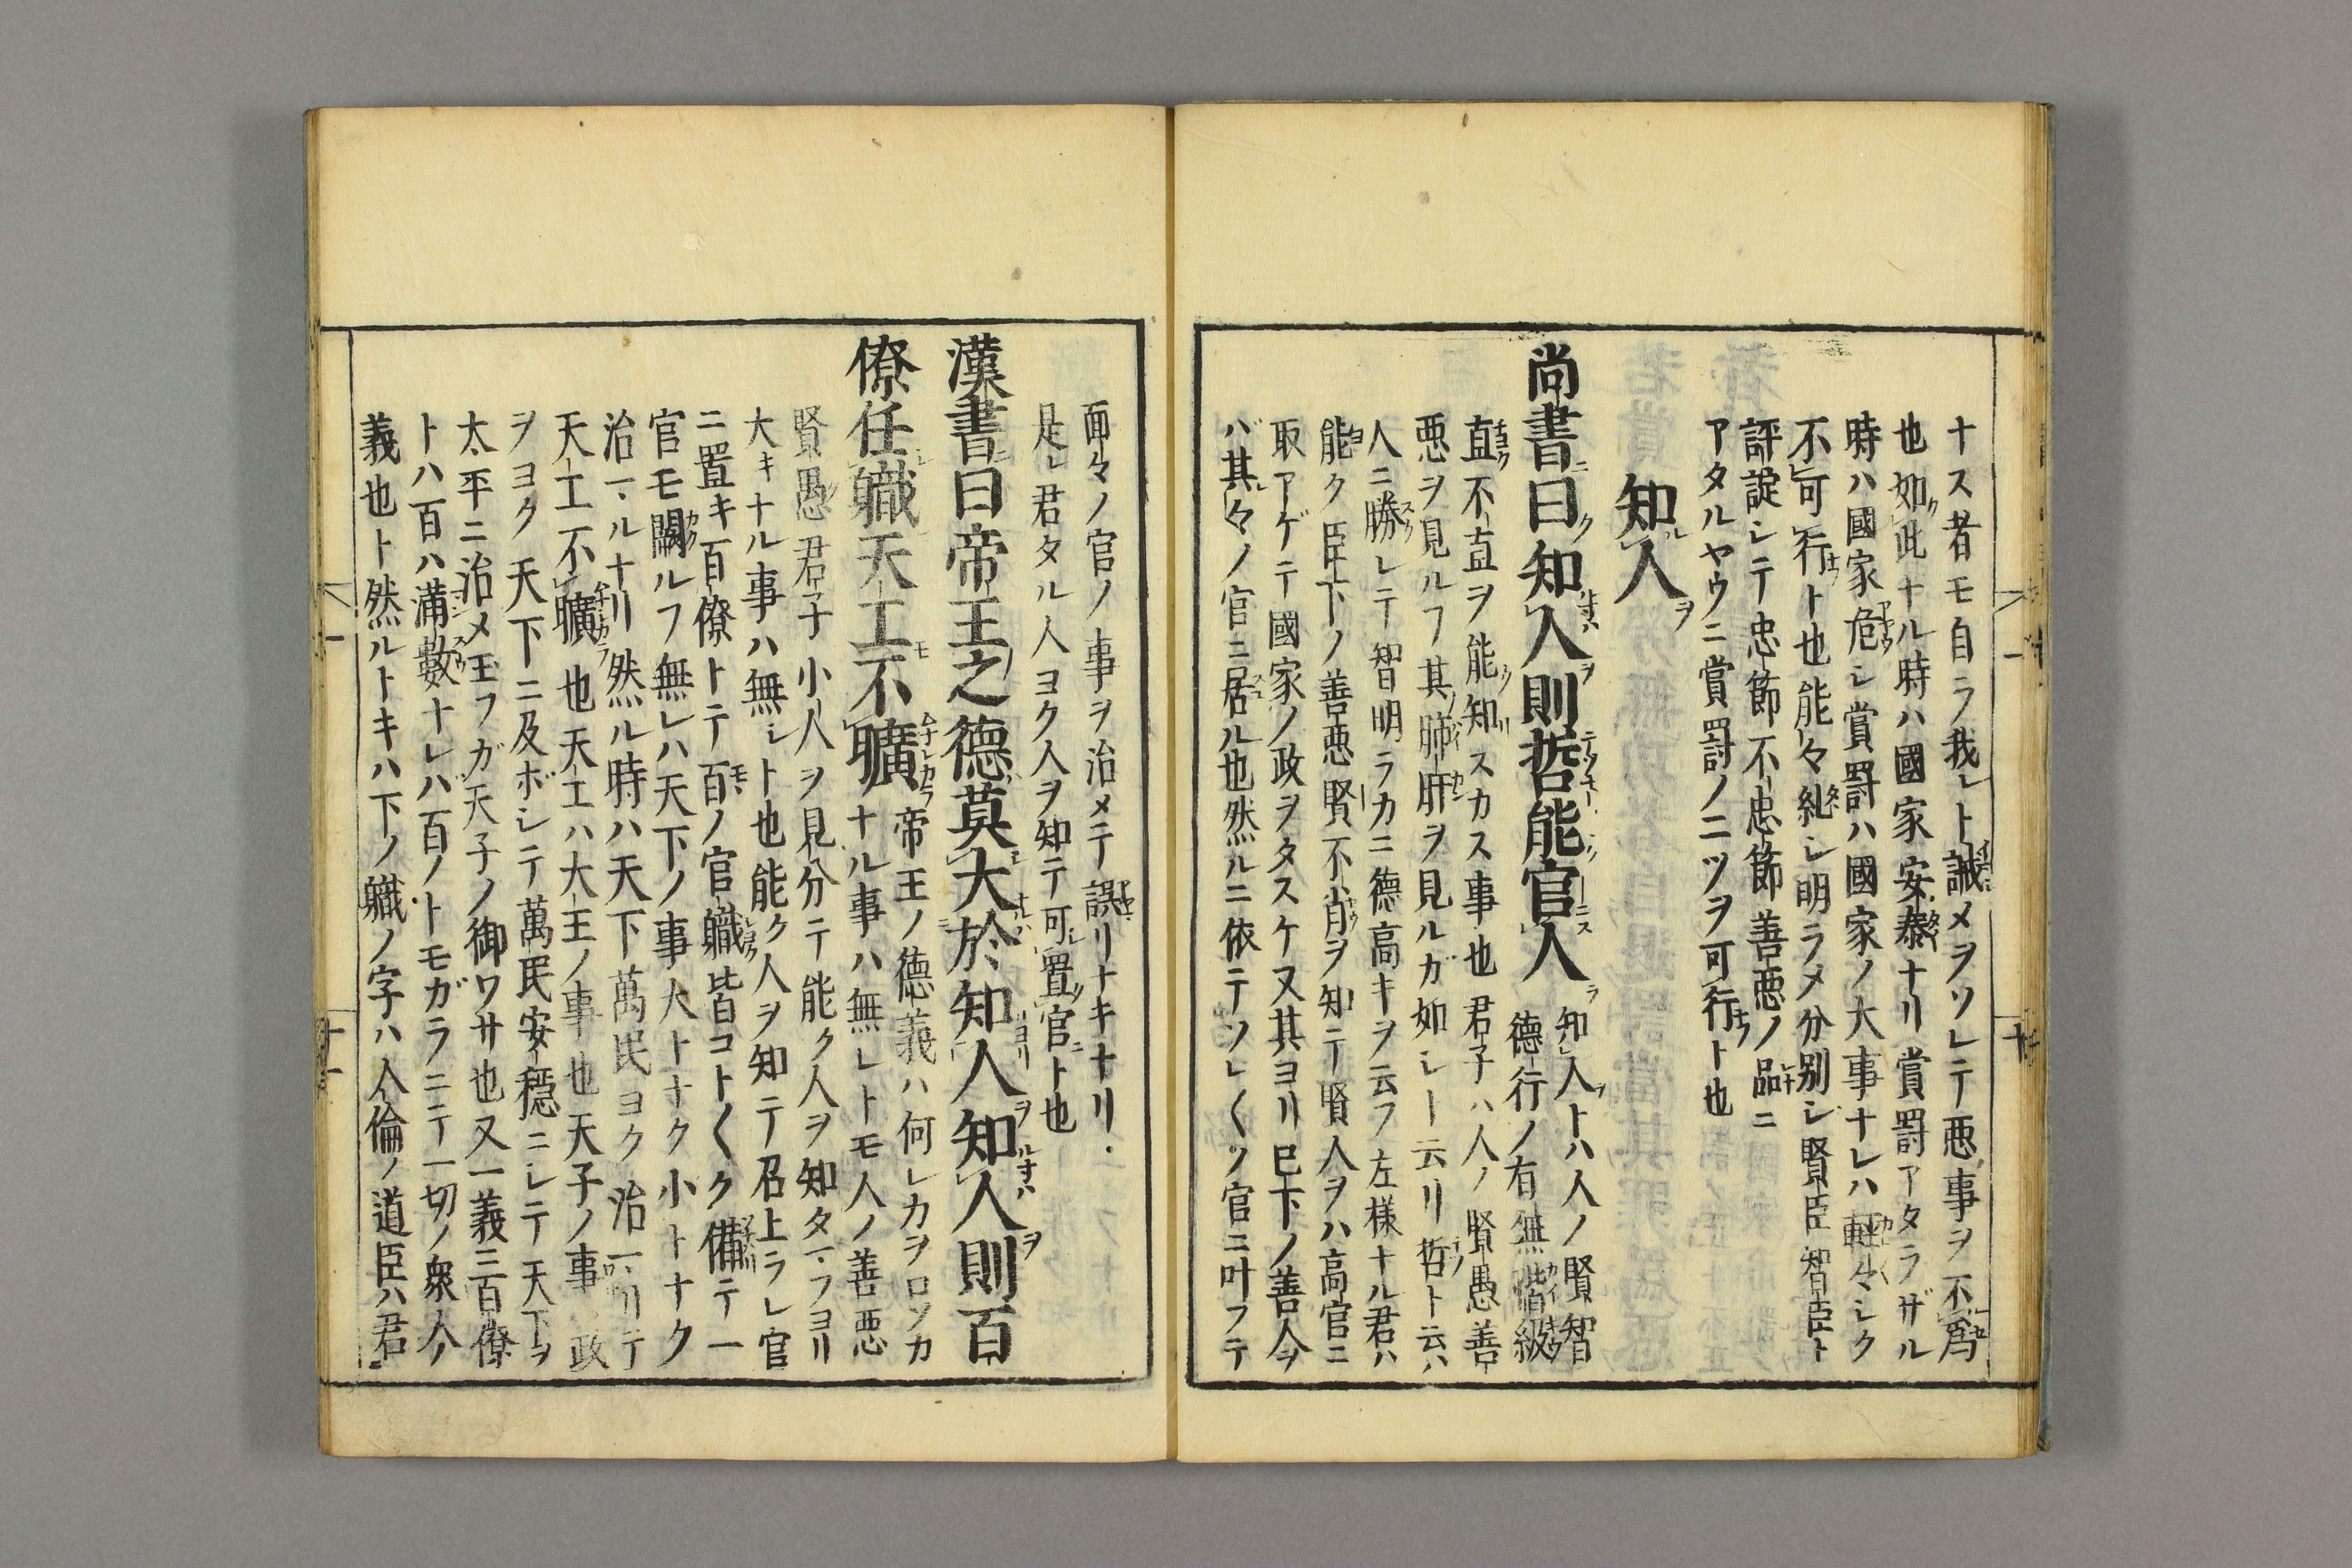 ナス者モ自ラ我レト誡メヲソレテ悪事ヲ不為
也如此ナル時ハ國家安泰ナリ賞罸アタラザル
時ハ國家危シ賞罸ハ國家ノ大事ナレハ輕々シク
不可行ト也能々糺シ明ラメ分別シ賢臣智臣ト
評諚シテ忠節不忠節善悪ノ品ニ
アタルヤウニ賞罸ノ二ツヲ可行ト也
知人ヲ
尚書ニ曰ク知人ヲ則哲能官人
知人ヲトハ人ノ賢智
德行ノ有無階級
直不直ヲ能知スカス事也君子ハ人ノ賢愚善
悪ヲ見ルフ其肺肝ヲ見ルガ如シト云リ哲ト云ハ
人ニ勝レテ智明ラカニ德高キヲ云フ左様ナル君ハ
能ク臣下ノ善悪賢不肖ヲ知テ賢人ヲハ高官ニ
取アゲテ國家ノ政ヲタスケ又其ヨリ已下ノ善人ヲ
バ其々ノ官ニ居ル也然ルニ依テソレ〱ノ官ニ叶フテ
面々ノ官ノ事ヲ治メテ誤リナキナリ
是レ君タル人ヨク人ヲ知テ可置官ニト也
漢書ニ曰帝王之德莫大於知人知人ヲ則百
僚任職天工不曠
帝王ノ德義ハ何レカヲロソカ
ナル事ハ無レトモ人ノ善悪
賢愚君子小人ヲ見分テ能ク人ヲ知タマフヨリ
大キナル事ハ無シト也能ク人ヲ知テ召上ラレ官
ニ置キ百僚トテ百ノ官職皆コト〱ク備テ一
官モ闕ルフ無レハ天下ノ事大トナク小トナク
治マルナリ然ル時ハ天下萬民ヨク治マリテ
天工不曠也天工ハ大王ノ事也天子ノ事政
ヲヨク天下ニ及ボシテ萬民安穏ニシテ天下ヲ
太平ニ治メ玉フガ天子ノ御ワサ也又一義三百僚
トハ百ハ滿數ナレバ百ノトモガラニテ一切ノ衆人ノ
義也ト然ルトキハ下ノ職ノ字ハ人倫ノ道臣ハ君